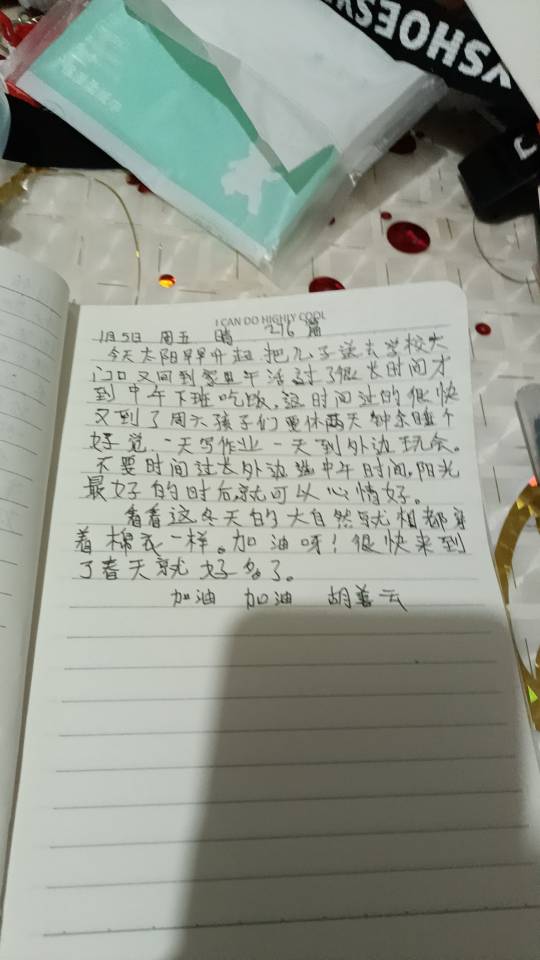 YSHOESK
I CAN DO HIGHLY COOL
1月5日 周五 晴 216篇
今天太阳早早升起把儿子送去学校大
门口又回到家里午活过了很长时间才
到中午下班吃饭,这时间过的很快
又到了周六孩子们要休两天 钟余睡个
好觉,一天写作业一天到外边玩会。
不要时间过去外边 中午时间,阳光
最好的时后,就可以心情好。
看看这冬天的大自然就相都穿
着棉衣一样。加油呀!很快来到
了春天就好多了。
加油 加油 胡善云